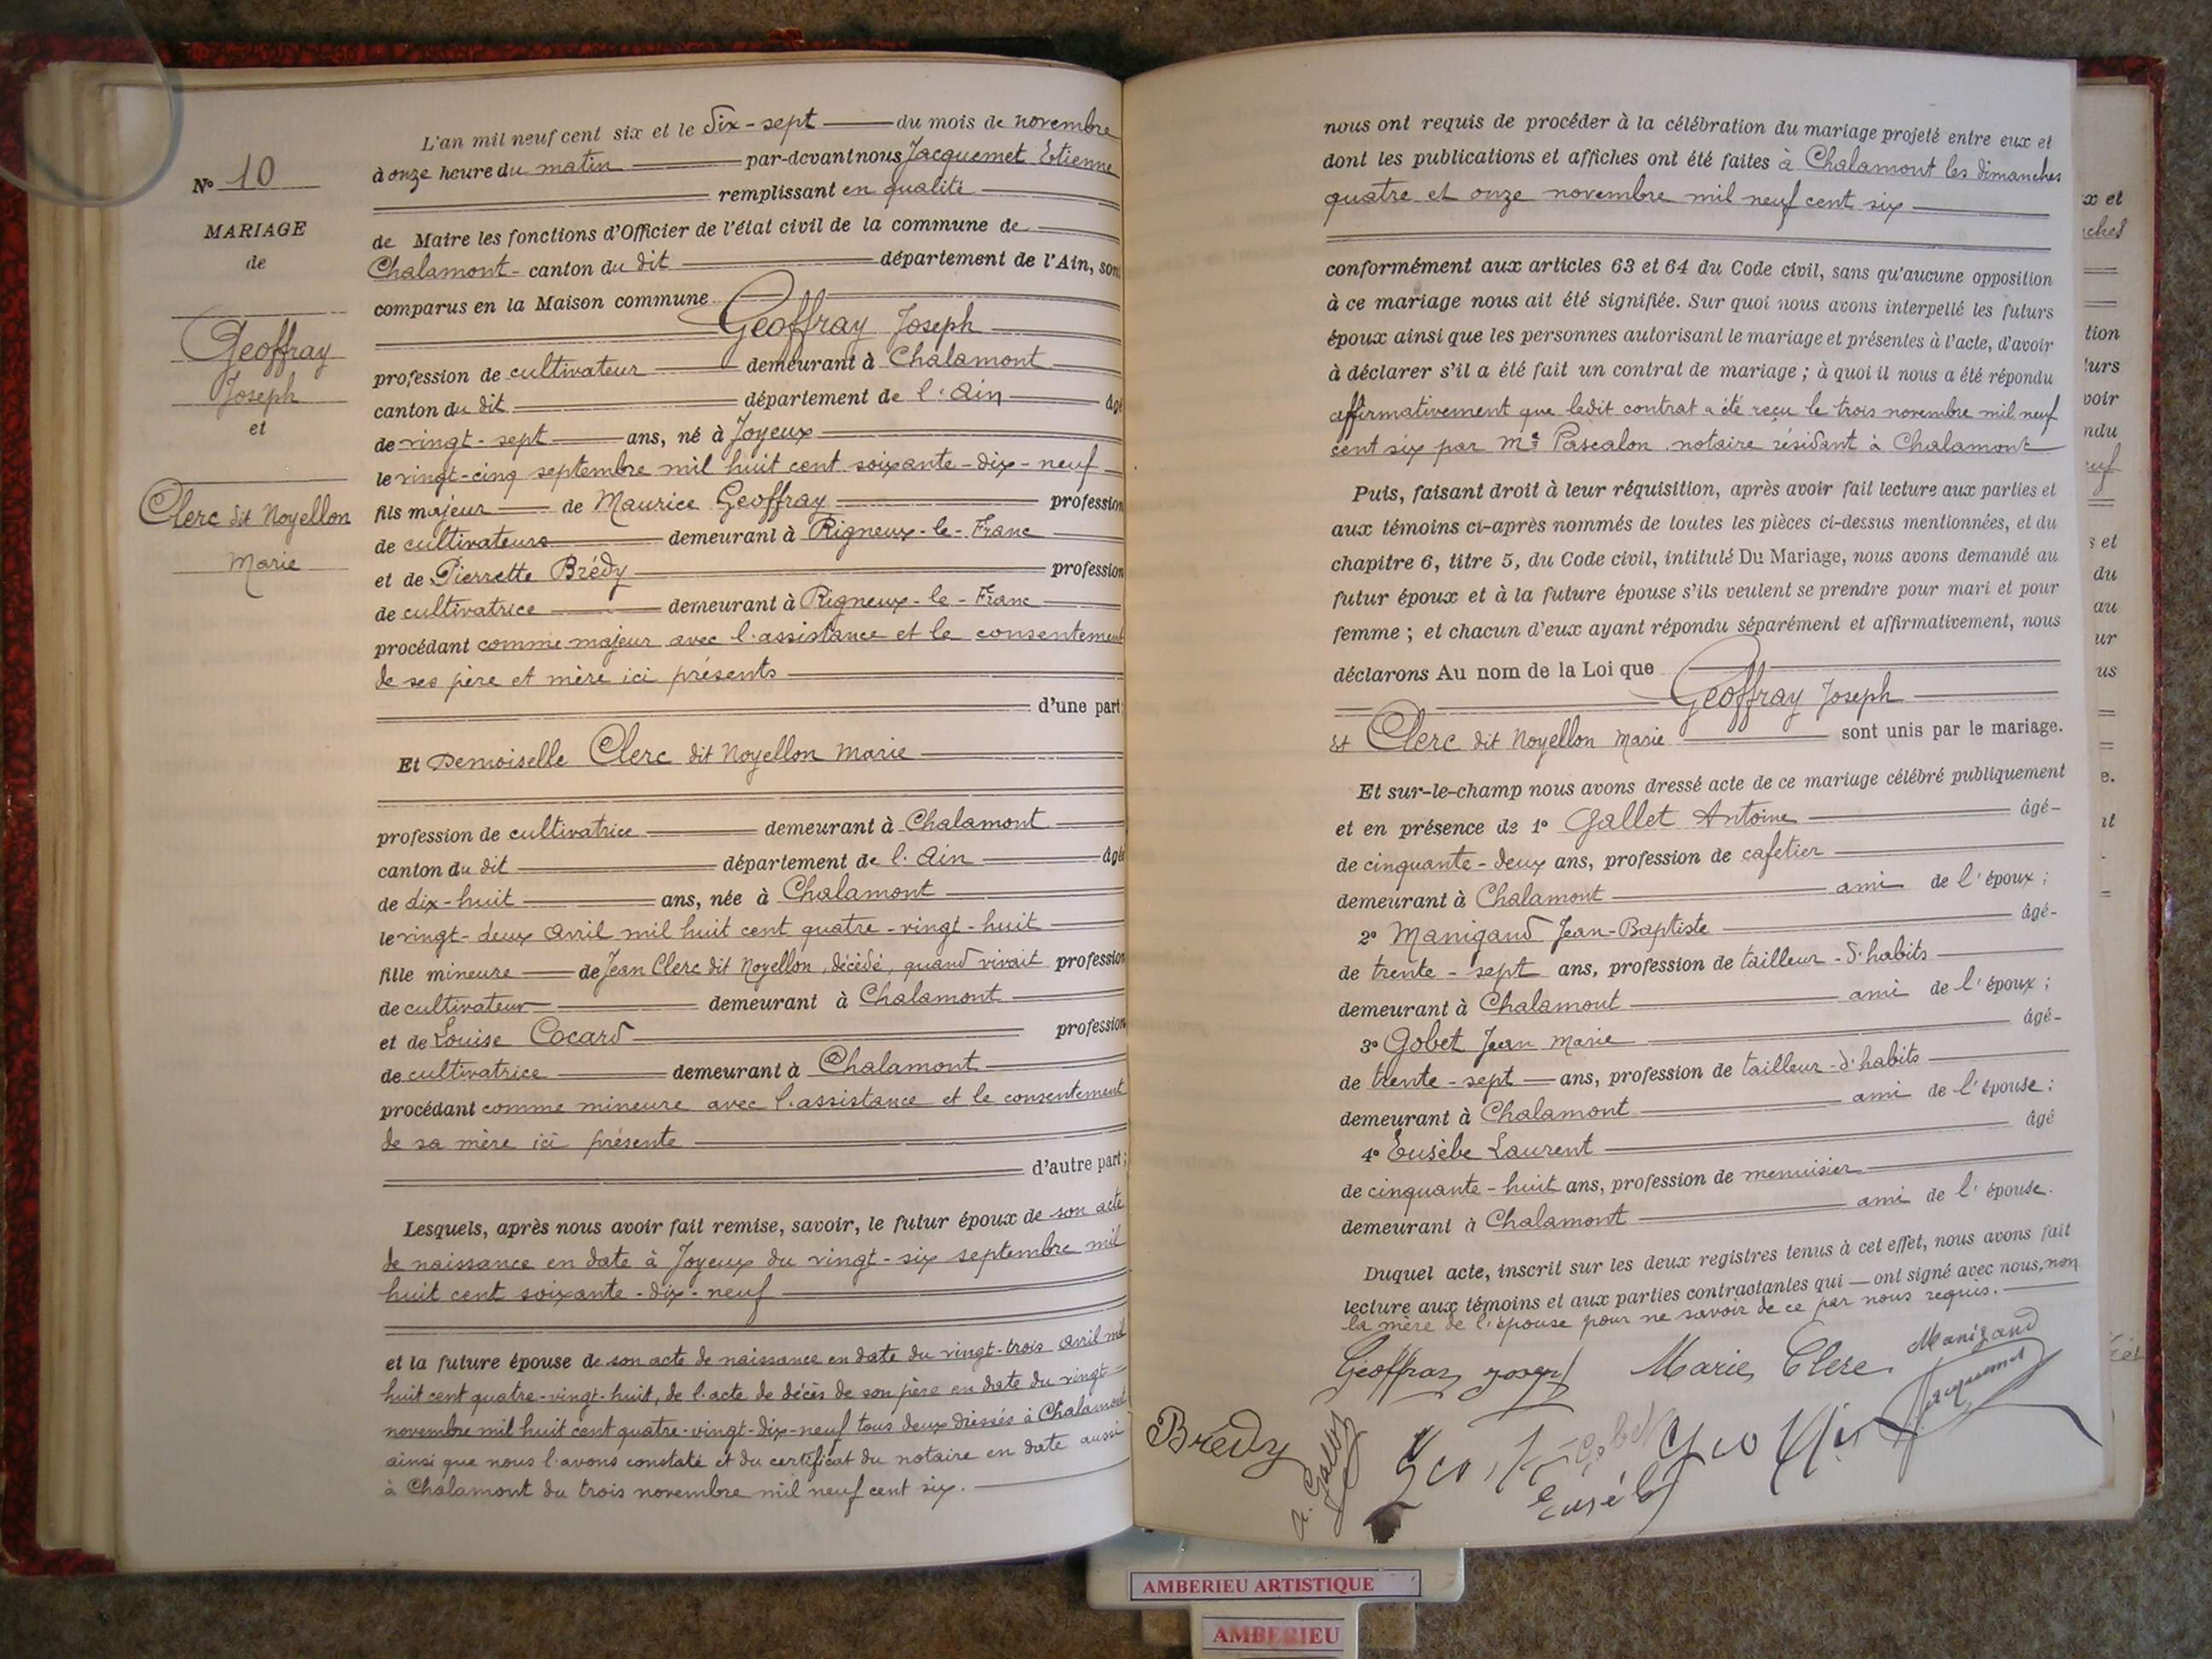 L'an mil neuf cent six et le Dix-sept du mois de novembre
à onze heure du matin par-devant nous Jacquemet Etienne
remplissant en qualité
de Maire les fonctions d'Officier de l'état civil de la commune de
Chalamont - canton du dit département de l'Ain, sont
comparus en la Maison commune
Geoffray Joseph
profession de cultivateur demeurant à Chalamont
canton du dit département de l'Ain âgé
de vingt-sept ans, né à Joyeux
le vingt-cinq septembre mil huit cent soixante-dix-neuf
fils majeur de Maurice Geoffray profession
de cultivateurs demeurant à Rigneux-le-Franc
et de Pierrette Brédy profession
de cultivatrice demeurant à Rigneux-le-Franc
procédant comme majeur avec l'assistance et le consentement
de ses père et mère ici présents
d'une part;
Et Demoiselle Clerc dit Noyellon Marie
profession de cultivatrice demeurant à Chalamont
canton du dit département de l'Ain âgée
de dix-huit ans, née à Chalamont
le vingt-deux avril mil huit cent quatre-vingt-huit
fille mineure de Jean Clerc dit Noyellon, décédé, quand vivait profession
de cultivateur demeurant à Chalamont
et de Louise Cocard profession
de cultivatrice demeurant à Chalamont
procédant comme mineure avec l'assistance et le consentement
de sa mère ici présente
d'autre part;
Lesquels, après nous avoir fait remise, savoir, le futur époux de son acte
de naissance en date à Joyeux du vingt-six septembre mil
huit cent soixante-dix-neuf
et la future épouse de son acte de naissance en date du vingt-trois avril mil
huit cent quatre-vingt-huit, de l'acte de décès de son père en date du vingt=
novembre mil huit cent quatre-vingt-dix-neuf tous deux dressés à Chalamont
ainsi que nous l'avons constaté et du certificat du notaire en date aussi
à Chalamont du trois novembre mil neuf cent six.
N° 10
MARIAGE
de
Geoffray
Joseph
et
Clerc dit Noyellon
Marie
nous ont requis de procéder à la célébration du mariage projeté entre eux et
dont les publications et affiches ont été faites à Chalamont les dimanches
quatre et onze novembre mil neuf cent six
conformément aux articles 63 et 64 du Code civil, sans qu'aucune opposition
à ce mariage nous ait été signifiée. Sur quoi nous avons interpellé les futurs
époux ainsi que les personnes autorisant le mariage et présentes à l'acte, d'avoir
à déclarer s'il a été fait un contrat de mariage; à quoi il nous a été répondu
affirmativement que ledit contrat a été reçu le trois novembre mil neuf
cent six par Me Pascalon notaire résidant à Chalamont
Puis, faisant droit à leur réquisition, après avoir fait lecture aux parties et
aux témoins ci-après nommés de toutes les pièces ci-dessus mentionnées, et du
chapitre 6, titre 5, du Code civil, intitulé Du Mariage, nous avons demandé au
futur époux et à la future épouse s'ils veulent se prendre pour mari et pour
femme; et chacun d'eux ayant répondu séparément et affirmativement, nous
déclarons Au nom de la Loi que
Geoffray Joseph
Et Clerc dit Noyellon Marie sont unis par le mariage.
Et sur-le-champ nous avons dressé acte de ce mariage célébré publiquement
et en présence de 1° Gallet Antoine âgé-
de cinquante-deux ans, profession de cafetier
demeurant à Chalamont ami de l'époux;
2° Manigand Jean-Baptiste âgé-
de trente-sept ans, profession de tailleur-d'habits
demeurant à Chalamont ami de l'époux;
3° Gobet Jean Marie âgé-
de trente-sept ans, profession de tailleur-d'habits
demeurant à Chalamont ami de l'épouse;
4° Eusèbe Laurent âgé
de cinquante-huit ans, profession de menuisier
demeurant à Chalamont ami de l'épouse.
Duquel acte, inscrit sur les deux registres tenus à cet effet, nous avons fait
lecture aux témoins et aux parties contractantes qui ont signé avec nous, non
la mère de l'épouse pour ne savoir de ce par nous requis.
Geoffray Marie Clerc Manigand
Jacquemet
Bredy
Gobet
Eusébe
AMBERIEU ARTISTIQUE
AMBERIEU